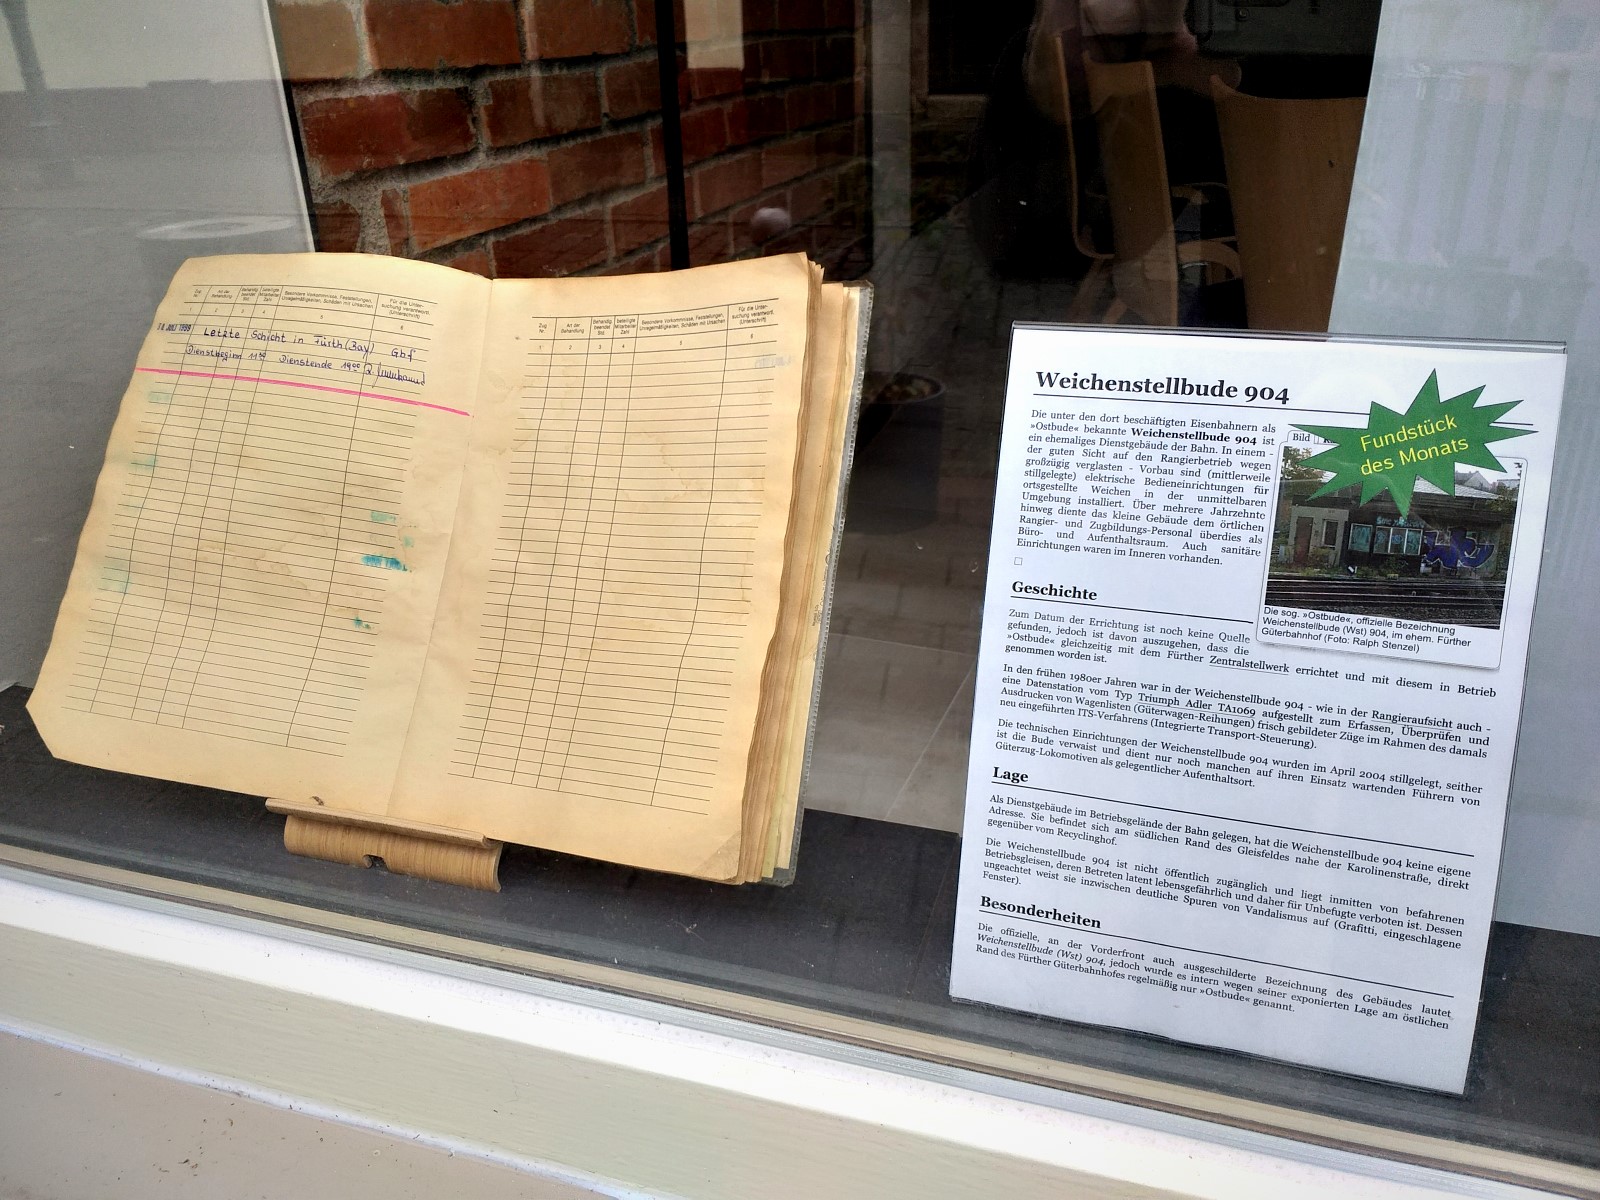 Zug Nr.
Art der Behandlung
Behandlg. beendet Std.
beteiligte Mitarbeiter Zahl
Besondere Vorkommnisse, Feststellungen, Unregelmäßigkeiten, Schäden mit Ursachen
Für die Unter-
suchung verantwortl.
(Unterschrift)
1 2 3 4 5 6
JULI 1999
Letzte Schicht in Fürth (Bay) Gbf
Dienstbeginn 11 Dienstende 19⁰⁰
Zug Nr.
Art der Behandlung
Behandlg. beendet Std.
beteiligte Mitarbeiter Zahl
Besondere Vorkommnisse, Feststellungen,
Unregelmäßigkeiten, Schäden mit Ursachen
Für die Unter-
suchung verantwortl.
(Unterschrift)
1 2 3 4 5 6
Weichenstellbude 904
Die unter den dort beschäftigten Eisenbahnern als
»Ostbude« bekannte Weichenstellbude 904 ist
ein ehemaliges Dienstgebäude der Bahn. In einem -
der guten Sicht auf den Rangierbetrieb wegen
großzügig verglasten - Vorbau sind (mittlerweile
stillgelegte) elektrische Bedieneinrichtungen für
ortsgestellte Weichen in der unmittelbaren
Umgebung installiert. Über mehrere Jahrzehnte
hinweg diente das kleine Gebäude dem örtlichen
Rangier- und Zugbildungs-Personal überdies als
Büro- und Aufenthaltsraum. Auch sanitäre
Einrichtungen waren im Inneren vorhanden.
Bild
Fundstück
des Monats
Die sog. »Ostbude«, offizielle Bezeichnung
Weichenstellbude (Wst) 904, im ehem. Fürther
Güterbahnhof (Foto: Ralph Stenzel)
Geschichte
Zum Datum der Errichtung ist noch keine Quelle
gefunden, jedoch ist davon auszugehen, dass die
»Ostbude« gleichzeitig mit dem Fürther Zentralstellwerk errichtet und mit diesem in Betrieb
genommen worden ist.
In den frühen 1980er Jahren war in der Weichenstellbude 904 - wie in der Rangieraufsicht auch -
eine Datenstation vom Typ Triumph Adler TA1069 aufgestellt zum Erfassen, Überprüfen und
Ausdrucken von Wagenlisten (Güterwagen-Reihungen) frisch gebildeter Züge im Rahmen des damals
neu eingeführten ITS-Verfahrens (Integrierte Transport-Steuerung).
Die technischen Einrichtungen der Weichenstellbude 904 wurden im April 2004 stillgelegt, seither
ist die Bude verwaist und dient nur noch manchen auf ihren Einsatz wartenden Führern von
Güterzug-Lokomotiven als gelegentlicher Aufenthaltsort.
Lage
Als Dienstgebäude im Betriebsgelände der Bahn gelegen, hat die Weichenstellbude 904 keine eigene
Adresse. Sie befindet sich am südlichen Rand des Gleisfeldes nahe der Karolinenstraße, direkt
gegenüber vom Recyclinghof.
Die Weichenstellbude 904 ist nicht öffentlich zugänglich und liegt inmitten von befahrenen
Betriebsgleisen, deren Betreten latent lebensgefährlich und daher für Unbefugte verboten ist. Dessen
ungeachtet weist sie inzwischen deutliche Spuren von Vandalismus auf (Grafitti, eingeschlagene
Fenster).
Besonderheiten
Die offizielle, an der Vorderfront auch ausgeschilderte Bezeichnung des Gebäudes lautet
Weichenstellbude (Wst) 904, jedoch wurde es intern wegen seiner exponierten Lage am östlichen
Rand des Fürther Güterbahnhofes regelmäßig nur »Ostbude« genannt.